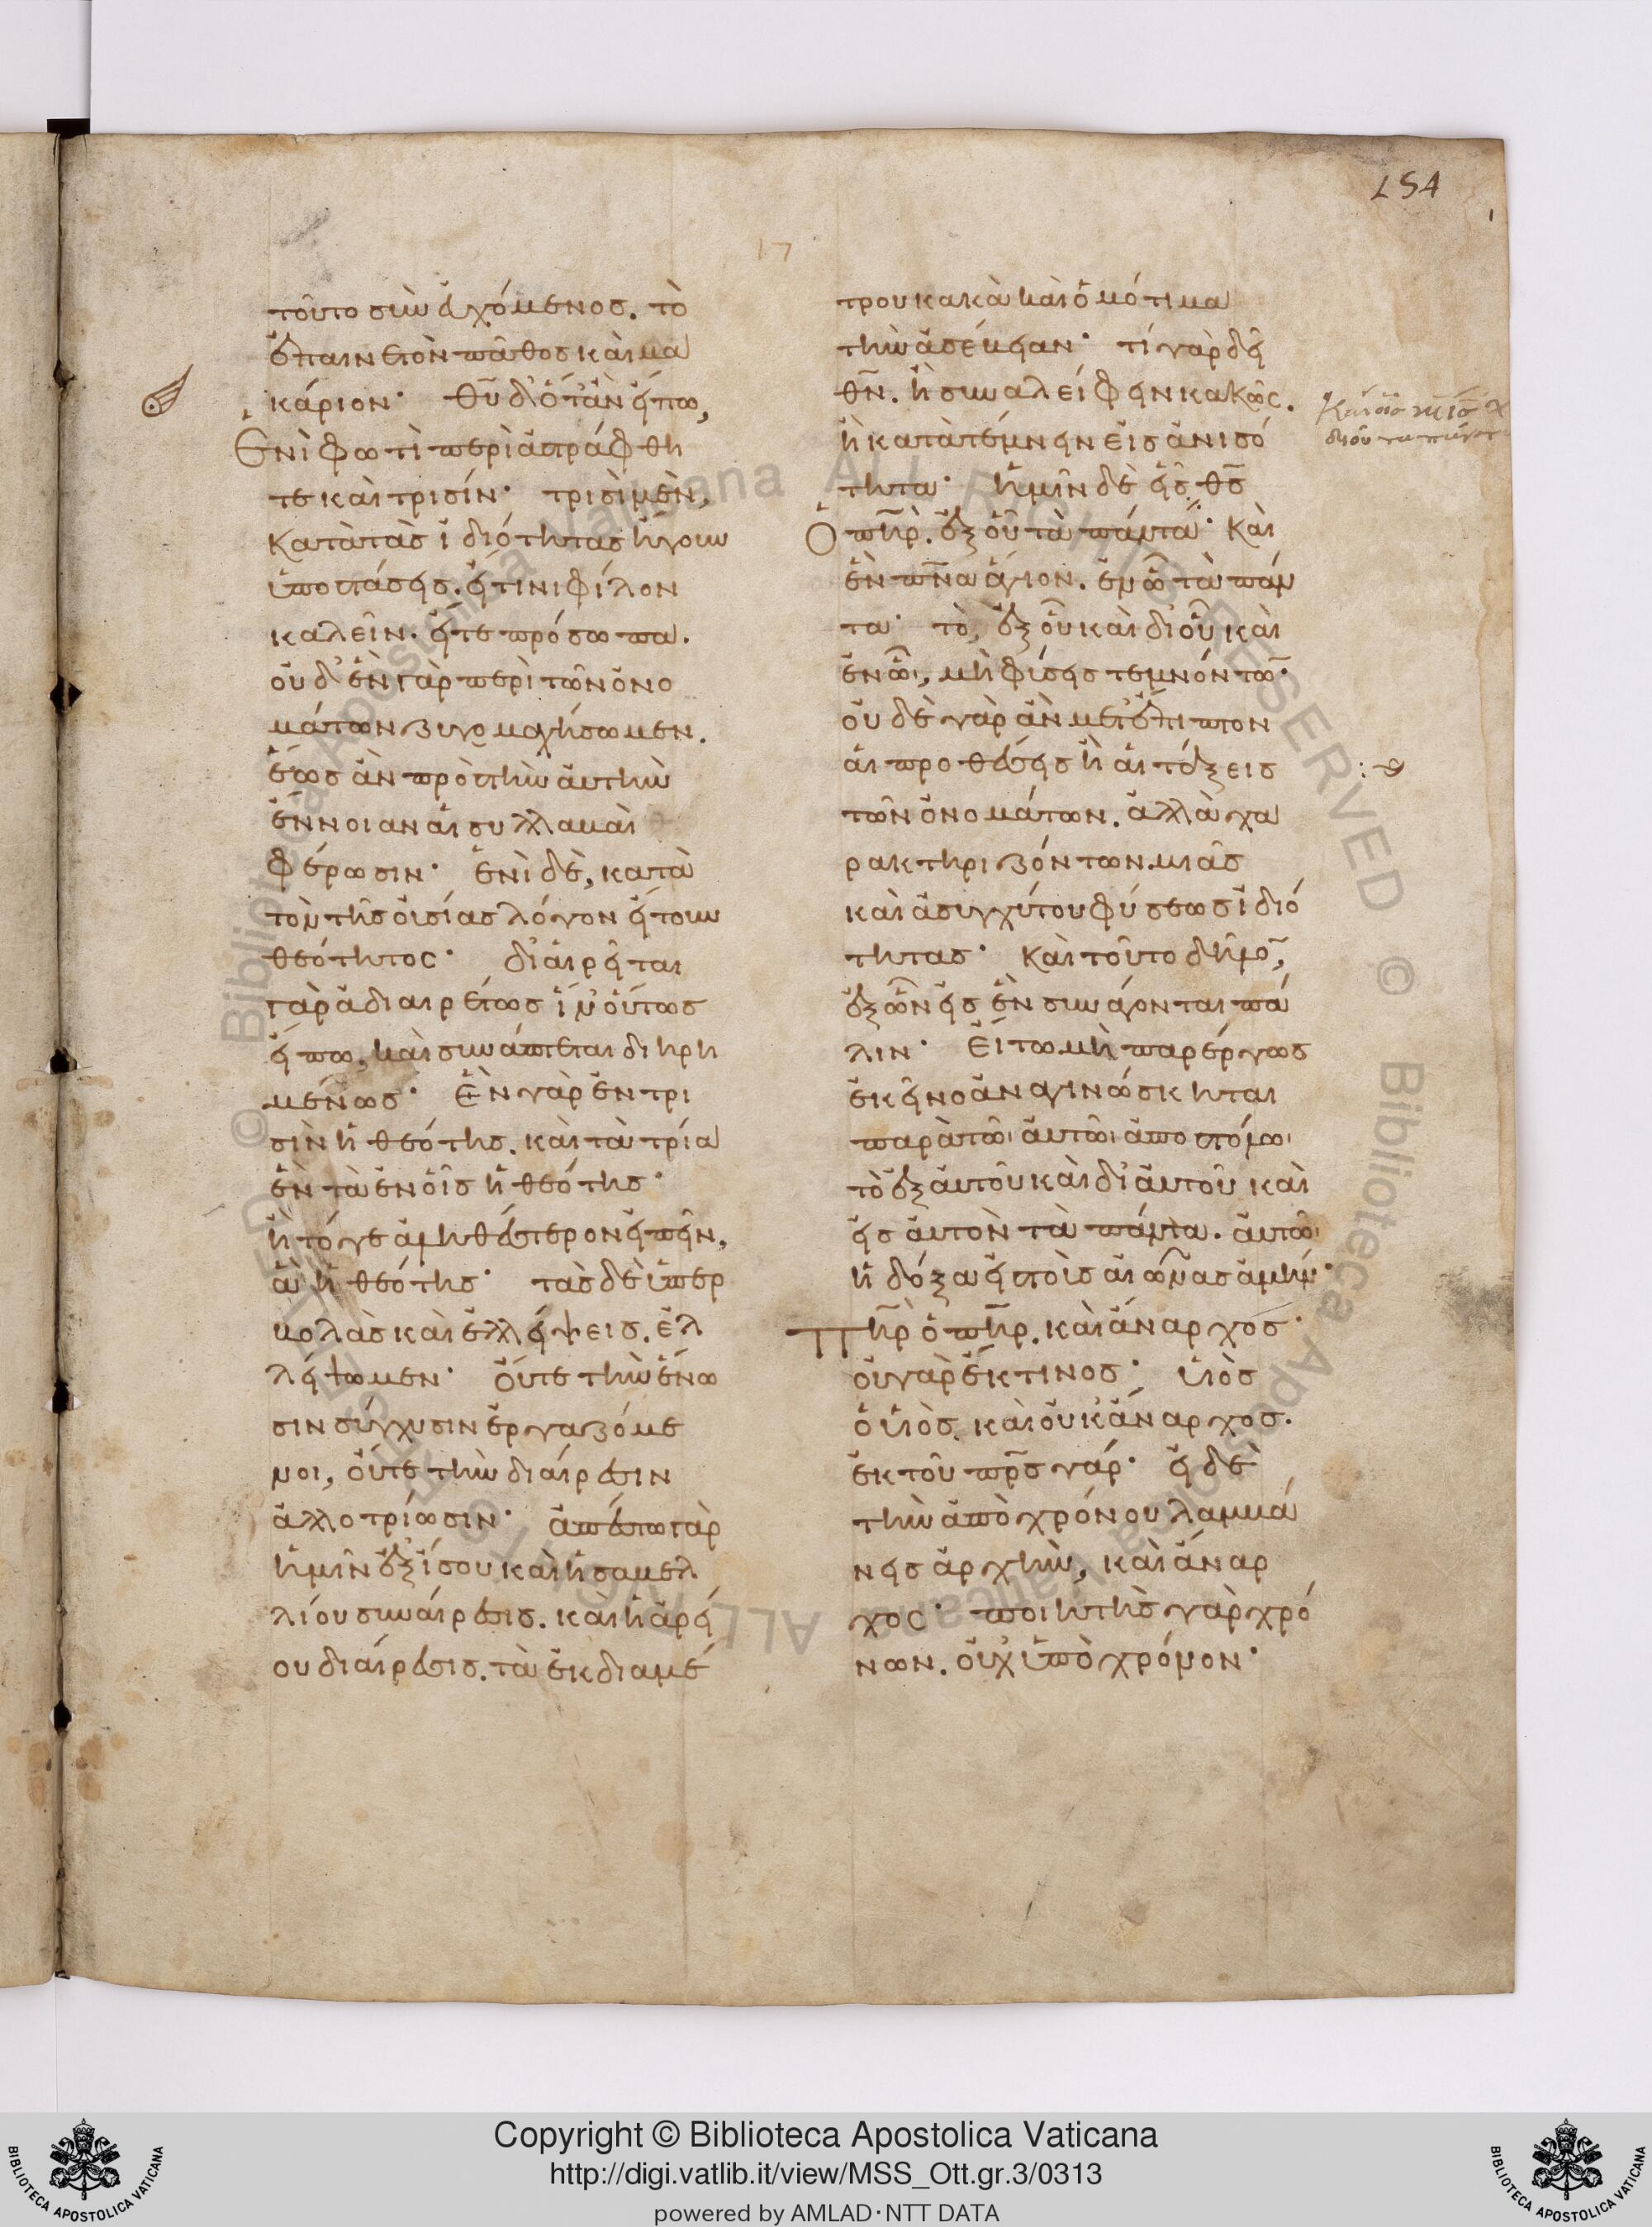 154
τοῦτο συνεχόμενος. τὸ
ἐπαινετὸν πάθος καὶ μα
κάριον· θῡ δ' ὅταν εἴπω,
Ἑνὶ φωτὶ περιαστράφθη
τε καὶ τρισίν· τρισὶ μὲν,
κατὰ τὰς ἰδιότητας ἤγουν
ὑποστάσεις. εἴ τινι φίλον
καλεῖν. εἴτε πρόσωπα.
οὐδὲν γὰρ περὶ τῶν ὀνο
μάτων ζυγομαχήσωμεν.
ἕως ἂν πρὸς τὴν αὐτὴν
ἔννοιαν αἱ συλλαβαὶ
φέρωσιν· ἑνὶ δὲ, κατὰ
τὸν τῆς οὐσίας λόγον εἴτουν
θεότητος· διαιρεῖται
γὰρ ἀδιαιρέτως ἵν' οὕτως
εἴπω, καὶ συνάπτεται διηρη
μένως· Ἓν γὰρ ἐν τρι
σὶν ἡ θεότης. καὶ τὰ τρία
ἓν τὰ ἐν οἷς ἡ θεότης·
ἢ τό γε ἀληθέστερον εἰπεῖν,
ἃ ἡ θεότης· τὰς δὲ ὑπερ
βολὰς καὶ ἐλλείψεις. ἐλ
λείψωμεν· οὔτε τὴν ἕνω
σιν σύγχυσιν ἐργαζόμε
νοι, οὔτε τὴν διαίρεσιν
ἀλλοτρίωσιν· ἀπέστω γὰρ
ἡμῖν ἐξ ἴσου καὶ ἡ σαβελ
λίου συναίρεσις. καὶ ἡ ἀρεί
ου διαίρεσις. τὰ ἐκ διαμέ
τρου κακὰ καὶ ὁμότιμα
τὴν ἀσέβειαν· τί γὰρ δεῖ
θν̄. ἢ συναλείφειν κακῶς.
ἢ κατατέμνειν εἰς ἀνισό
τητα· ἡμῖν δὲ εἷς θς̄
Ὁ πη̄ρ. ἐξ οὗ τὰ πάντα· Καὶ
ἓν πν̄α ἅγιον. ἐν ᾧ τὰ πάν
τα· τὸ, ἐξ οὗ καὶ δι' οὗ καὶ
ἐν ᾧ, μὴ φύσεις τεμνόντω̄·
οὐδὲ γὰρ ἂν μετέπιπτον
αἱ προθέσεις ἢ αἱ τάξεις
τῶν ὀνομάτων. ἀλλὰ χα
ρακτηριζόντων μιᾶς
καὶ ἀσυγχύτου φύσεως ἰδιό
τητας· Καὶ τοῦτο δῆλο̄,
ἐξ ὧν εἰς ἓν συνάγονται πά
λιν· Εἴ τω μὴ παρέργως
ἐκεῖνο ἀναγινώσκηται
παρὰ τῶ αὐτῶ ἀποστόλω
τὸ ἐξ αὐτοῦ καὶ δι' αὐτοῦ καὶ
εἰς αὐτὸν τὰ πάντα. αὐτῶ
ἡ δόξα εἰς τοὺς αἰῶνας ἀμήν·
Πη̄ρ ὁ πη̄ρ. καὶ ἄναρχος·
οὐ γὰρ ἔκ τινος· υἱὸς
ὁ υἱὸς. καὶ οὐκ ἄναρχος.
ἐκ τοῦ πρ̄ς γάρ· εἰ δὲ
τὴν ἀπὸ χρόνου λαμβά
νεις ἀρχὴν, καὶ ἄναρ
χος· ποιητὴς γὰρ χρό
νων. οὐχ ὑπὸ χρόνον·
Copyright © Biblioteca Apostolica Vaticana
http://digi.vatlib.it/view/MSS_Ott.gr.3/0313
powered by AMLAD·NTT DATA